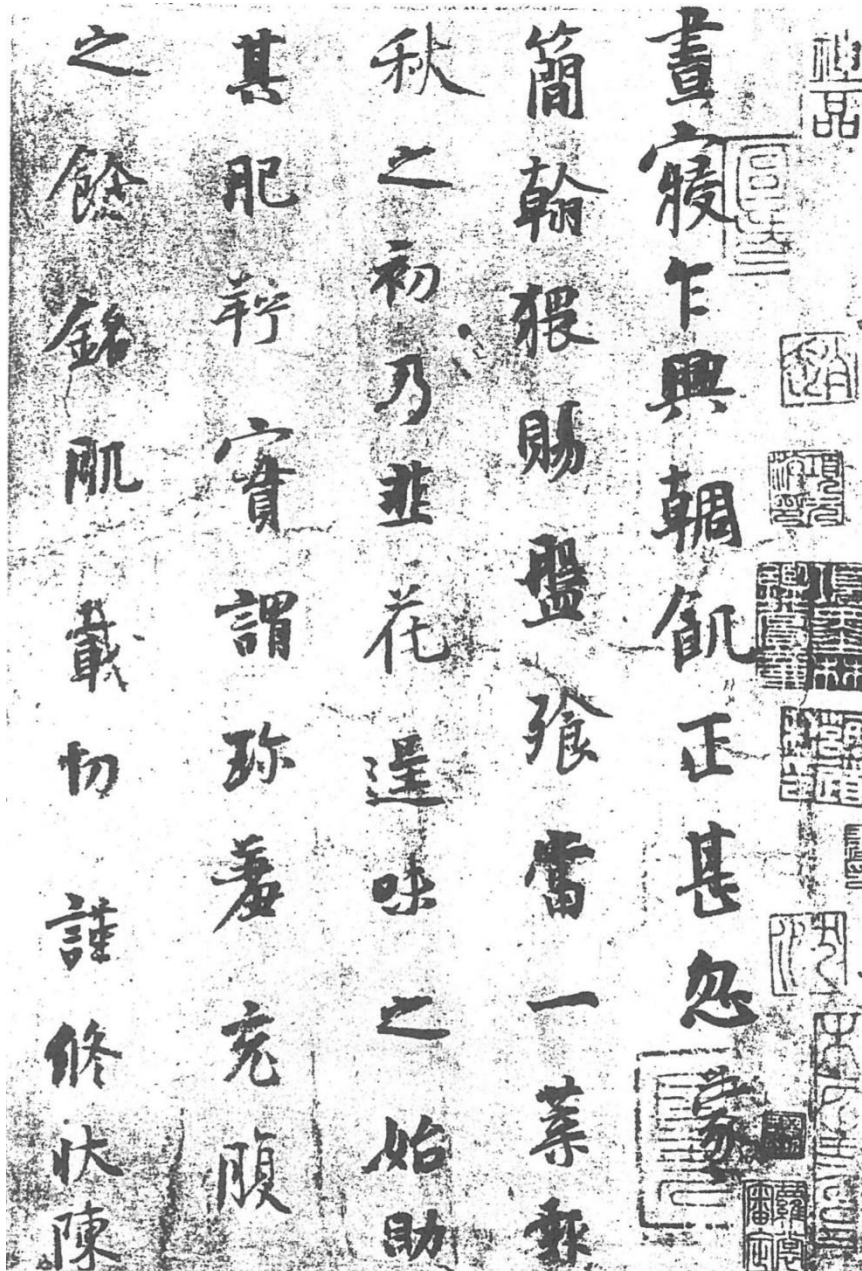 晝寢乍興輖飢正甚忽蒙
簡翰猥賜盤飧當一葉報
秋之初乃韭花逞味之始助
其肥羜實謂珍羞充腹
之餘銘肌載切謹修狀陳
神品